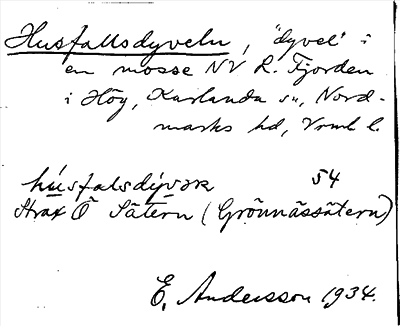 Husfallsdyveln, "dyvel" i
en mosse NV L. Fjorden
i Hög, Karlanda sn, Nord-
marks hd, Vrml l.
húsfalsdývæ̨ 54
Strax Ö Sätern (Grönnässätern)
E. Andersson 1934.